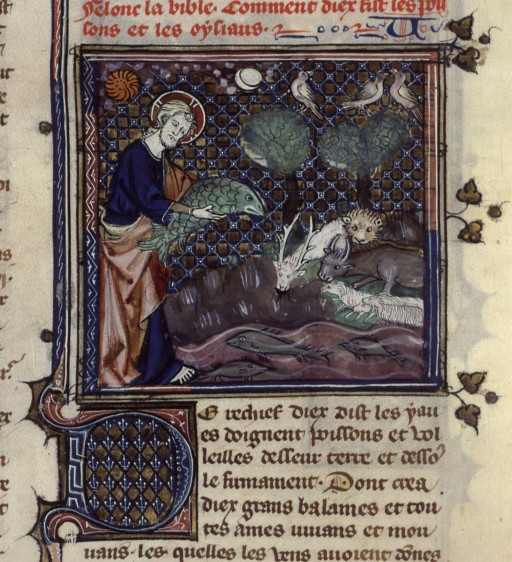 selonc la bible. Comment diex fist les pois
sons et les oysiaus.
E rechief diex dist les yau
es doignent poissons et vol
leilles desseur terre et desso
le firmament. Dont crea
diex grans balaines et tou
tes ames uiuans et mou
uans les quelles les yeus auoient